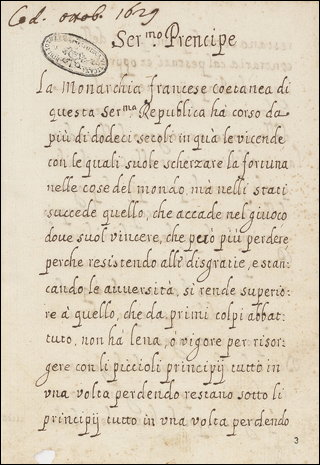 Cod. ottob. 1629
Ser.mo Prencipe
La Monarchia francese coetanea di
questa Ser.ma Republica ha corso da
più di dodeci secoli in quà le vicende
con le quali suole scherzare la fortuna
nelle cose del mondo, mà nelli stati
succede quello, che accade nel giuoco
doue suol vincere, che però più perdere
perche resistendo alle disgratie, e stan:
cando le auuersità, si rende superio:
re à quello, che da primi colpi abbat:
tuto, non hà lena, ò vigore per risor:
gere con li piccioli principij tutto in
vna volta perdendo restano sotto li
principij tutto in vna volta perdendo
3